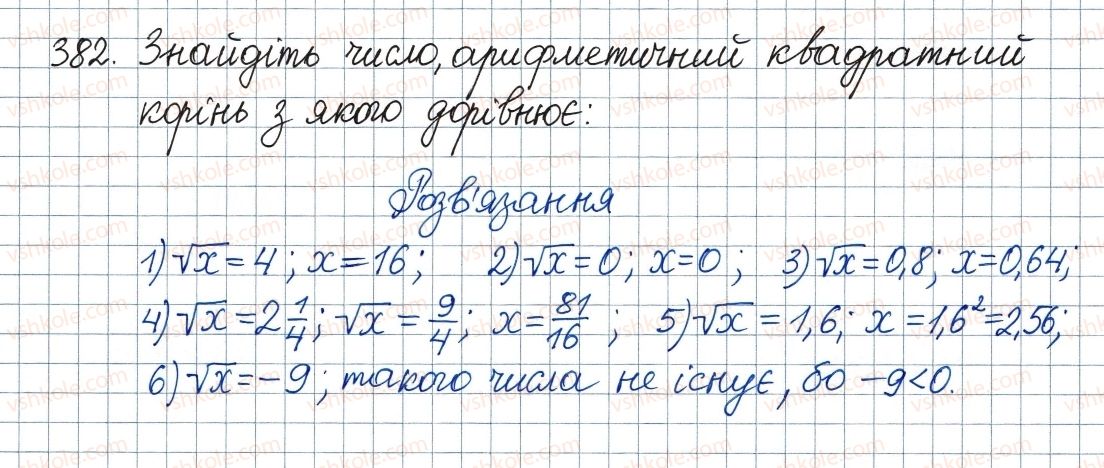 382. Знайдіть число, арифметичний квадратний
корінь з якого дорівнює:
Розв'язання
1) √x = 4; x = 16; 2) √x = 0; x = 0; 3) √x = 0,8; x = 0,64;
4) √x = 2 1/4; √x = 9/4; x = 81/16; 5) √x = 1,6; x = 1,6² = 2,56;
6) √x = -9; такого числа не існує, бо -9 < 0.